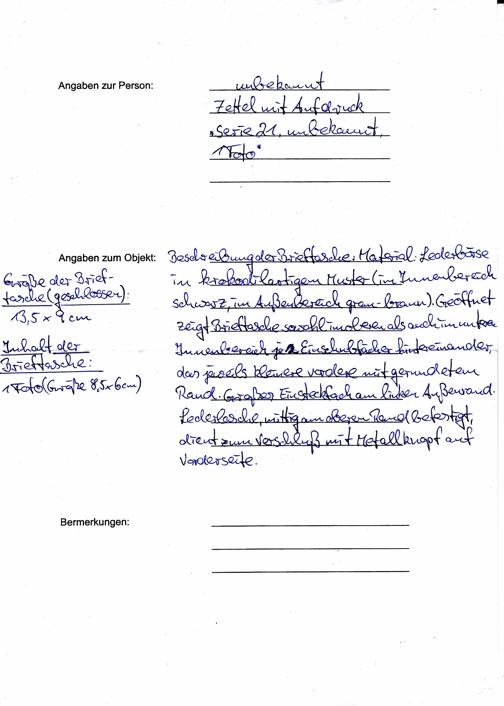 Angaben zur Person:
unbekannt
Zettel mit Aufdruck
"Serie 21, unbekannt,
1 Foto"
Angaben zum Objekt:
Beschreibung der Brieftasche: Material: Lederbörse
in krokodilartigem Muster (im Innenbereich
schwarz, im Außenbereich grau-braun). Geöffnet
zeigt Brieftasche sowohl im oberen als auch im unteren
Innenbereich je 2 Einschubfächer hintereinander,
das jeweils kleinere vordere mit gerundetem
Rand. Großes Einsteckfach am linken Außenrand.
Lederlasche, mittig am oberen Rand befestigt,
dient zum Verschluß mit Metallknopf auf
Vorderseite.
Größe der Brief-
tasche (geschlossen):
13,5 x 9 cm
Inhalt der
Brieftasche:
1 Foto (Größe 8,5x6cm)
Bermerkungen: